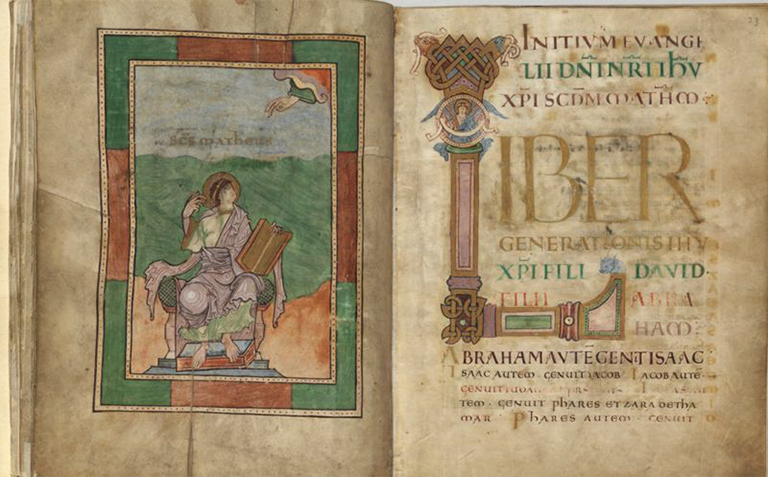 SC̄S MATHEUS
23
INITIVM EVANGE
LII DN̄I NR̄I IH̄V
XP̄I SCDM MATHM·
LIBER
GENERATIONIS IHV
XP̄I FILI DAVID·
FILII ABRA
HAM·
ABRAHAM AVTĒ GENT ISAAC·
ISAAC AUTEM · GENUIT IACOB · IACOB AUTĒ·
GENUIT
TEM · GENUIT PHARES ET ZARA DE THA
MAR · PHARES AUTEM · GENUIT